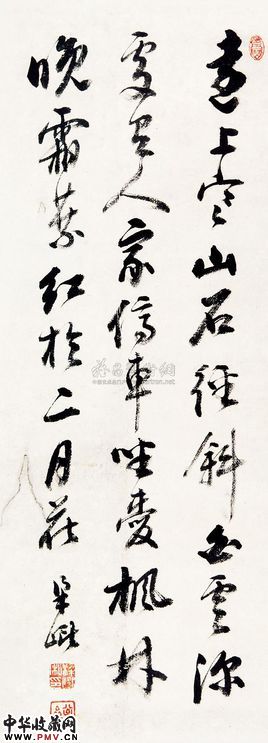 遠上寒山石徑斜白雲深
處有人家停車坐愛楓林
晚霜葉紅於二月花 梁巘
中华收藏网
WWW.PMV.CN